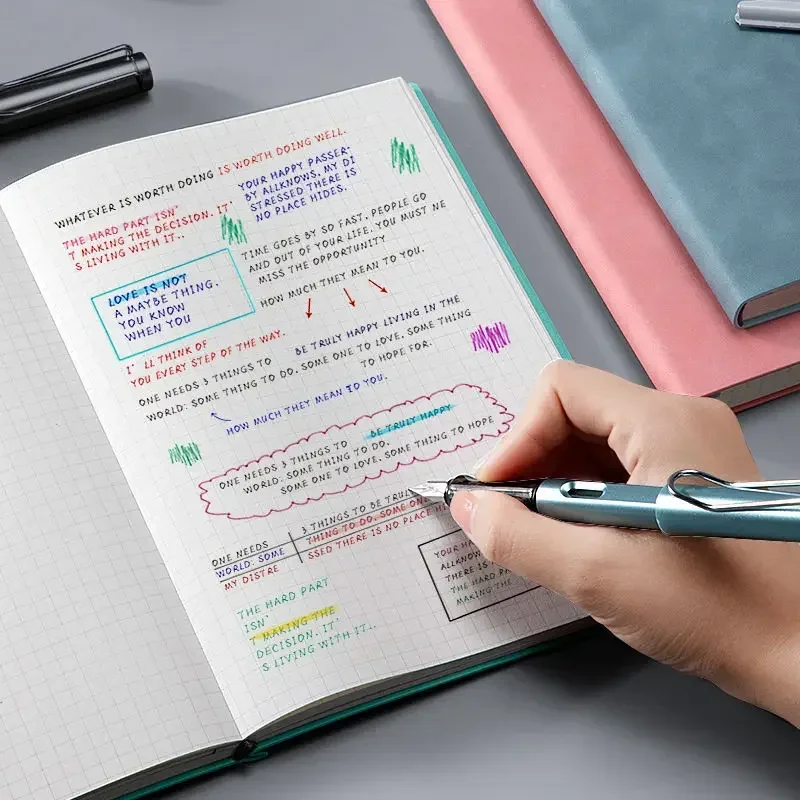 WHATEVER IS WORTH DOING IS WORTH DOING WELL.
THE HARD PART ISN'
T MAKING THE DECISION. IT'
S LIVING WITH IT..
YOUR HAPPY PASSER-
BY ALLKNOWS, MY DI
STRESSED THERE IS
NO PLACE HIDES.
TIME GOES BY SO FAST, PEOPLE GO
AND OUT OF YOUR LIFE. YOU MUST NE
MISS THE OPPORTUNITY
HOW MUCH THEY MEAN TO YOU.
LOVE IS NOT
A MAYBE THING.
YOU KNOW
WHEN YOU
I' LL THINK OF
YOU EVERY STEP OF THE WAY.
ONE NEEDS 3 THINGS TO BE TRULY HAPPY LIVING IN THE
WORLD: SOME THING TO DO. SOME ONE TO LOVE. SOME THING
TO HOPE FOR.
HOW MUCH THEY MEAN TO YOU.
ONE NEEDS 3 THINGS TO BE TRULY HAPPY
WORLD: SOME THING TO DO.
SOME ONE TO LOVE. SOME THING TO HOPE
ONE NEEDS
WORLD: SOME
MY DISTRE
3 THINGS TO BE TRUL
THING TO DO. SOME ON
SSED THERE IS NO PLACE HI
YOUR HA
ALLKNOW
THERE IS
THE HARD PA
MAKING THE
THE HARD PART
ISN'
T MAKING THE
DECISION. IT'
S LIVING WITH IT..